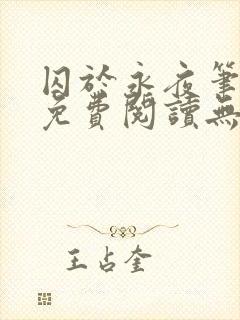 囚於永夜筆
免費閱讀無
王占奎